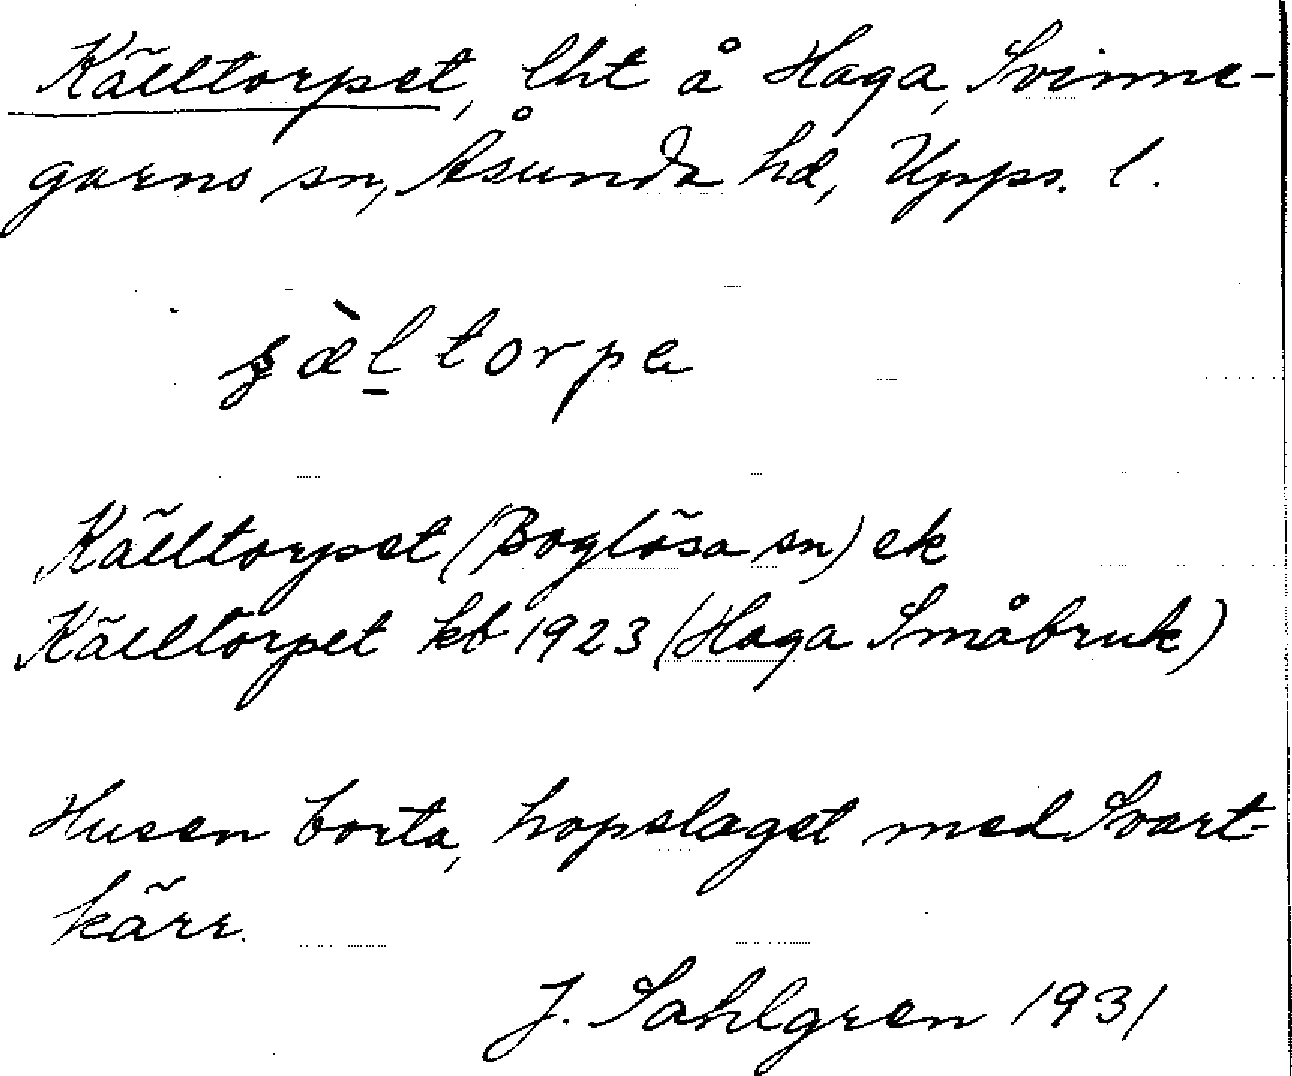 Källtorpet, lht å Haga, Svinne-
garns sn, Åsunda hd, Upps. l.
Källtorpet (Boglösa sn) ek
Källtorpet kb 1923 (Haga Småbruk)
Husen borta, hopslaget med Svart-
kärr.
J. Sahlgren 1931